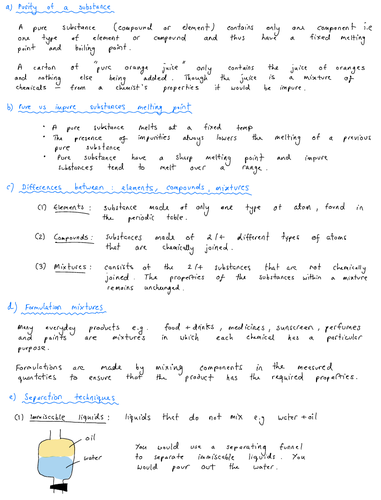 a) Purity of a substance
A pure substance (compound or element) contains only one component i.e
one type of element or compound and thus have a fixed melting
point and boiling point.
A carton of "pure orange juice" only contains the juice of oranges
and nothing else being added. Though the juice is a mixture of
chemicals so from a chemist's properties it would be impure.
b) Pure vs impure substances melting point
• A pure substance melts at a fixed temp
• The presence of impurities always lowers the melting of a previous
pure substance
• Pure substance have a sharp melting point and impure
substances tend to melt over a range.
c) Differences between: elements, compounds, mixtures
(1) Elements: substance made of only one type of atom, found in
the periodic table.
(2) Compounds: substances made of 2/+ different types of atoms
that are chemically joined.
(3) Mixtures: consists of the 2/+ substances that are not chemically
joined. The properties of the substances within a mixture
remains unchanged.
d) Formulation mixtures
Many everyday products e.g. food + drinks, medicines, sunscreen, perfumes
and paints are mixtures in which each chemical has a particular
purpose.
Formulations are made by mixing components in the measured
quantities to ensure that the product has the required properties.
e) Separation techniques
(1) Immiscable liquids: liquids that do not mix e.g water + oil
oil
water
You would use a separating funnel
to separate immiscable liquids. You
would pour out the water.